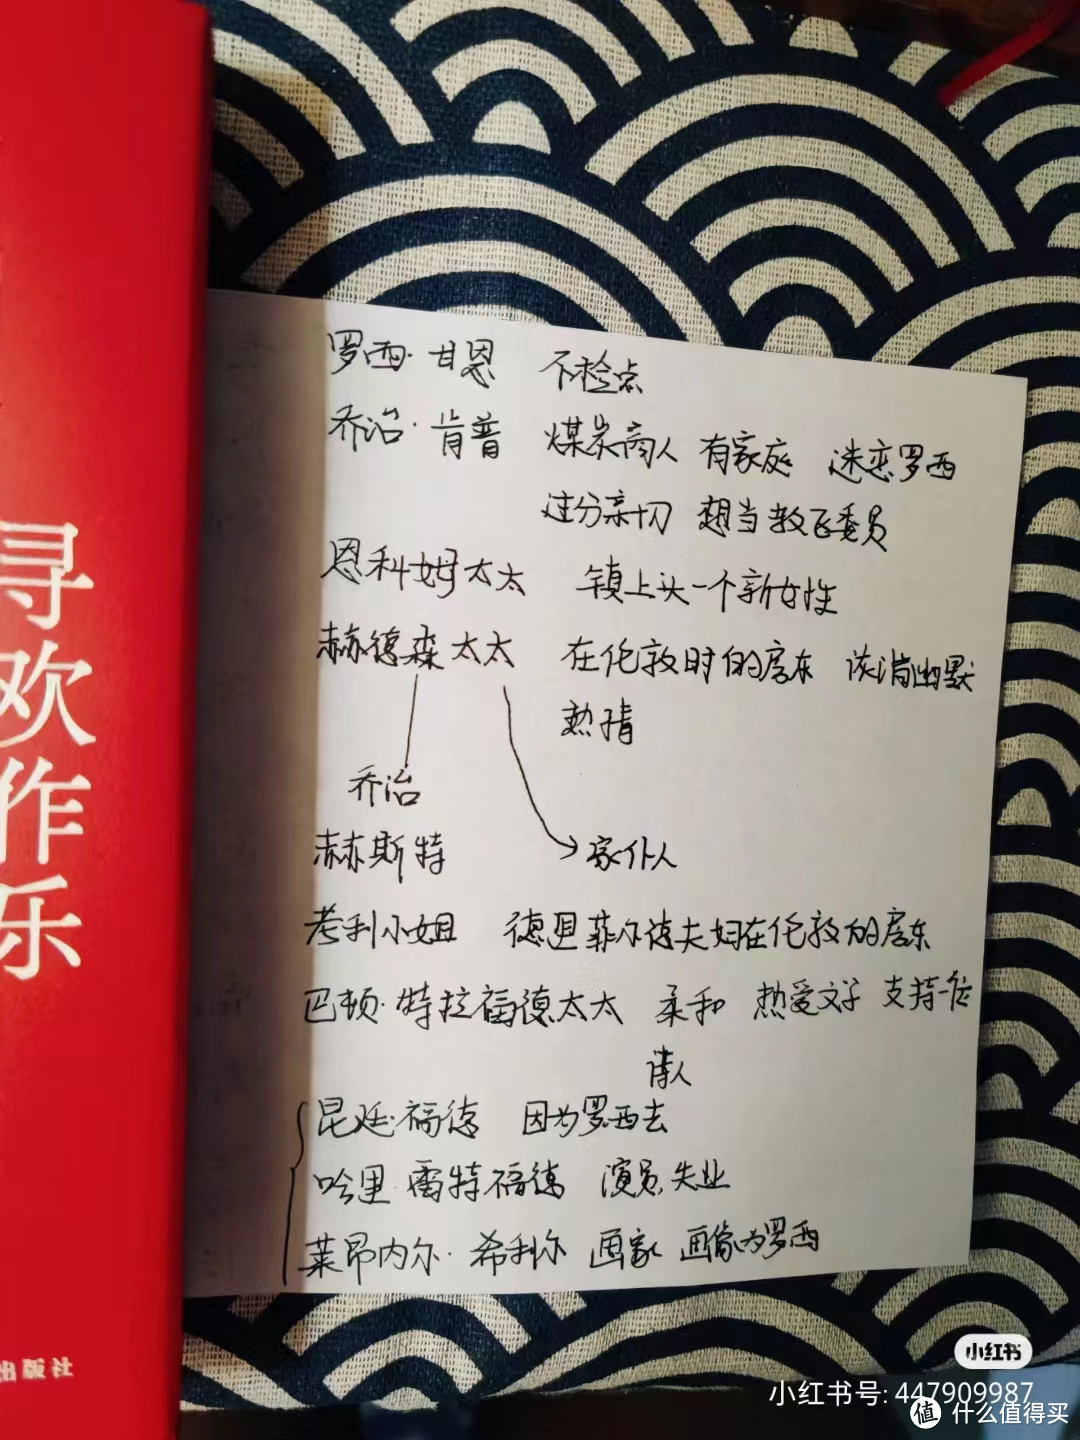 寻欢作乐
出版社
罗西·甘恩 不检点
乔治·肯普 煤炭商人 有家庭 迷恋罗西
过分亲切 想当教区委员
恩科姆太太 镇上头一个新女性
赫德森太太 在伦敦时的房东 诙谐幽默
热情
乔治
赫斯特 家仆人
考利小姐 德里菲尔德夫妇在伦敦的房东
巴顿·特拉福德太太 柔和 热爱文学 支持一位
诗人
昆廷·福德 因为罗西去
哈里·雷特福德 演员 失业
莱昂内尔·希利尔 画家 画像为罗西
小红书
小红书号: 447909987
值 什么值得买